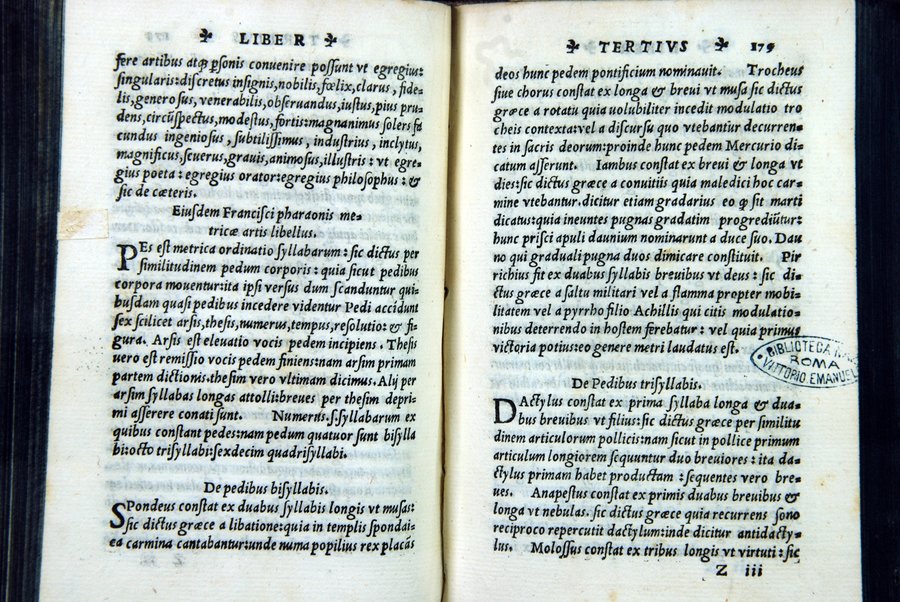 LIBER
fere artibus atqꝫ ꝑsonis conuenire possunt vt egregius:
singularis:discretus insignis,nobilis,fœlix,clarus, fide-
lis,generosus,venerabilis,obseruandus,iustus,pius pru-
dens,circũspectus,modestus,fortis:magnanimus solers fa
cundus ingeniosus, subtilissimus, industrius, inclytus,
magnificus,seuerus,grauis,animosus,illustris: vt egre-
gius poeta: egregius orator:egregius philosophus: &
sic de cæteris.
Eiusdem Francisci pharaonis me-
tricæ artis libellus.
PEs est metrica ordinatio syllabarum: sic dictus per
similitudinem pedum corporis: quia sicut pedibus
corpora mouentur:ita ipsi versus dum scanduntur qui-
busdam quasi pedibus incedere videntur Pedi accidunt
sex scilicet arsis,thesis,numerus,tempus,resolutio: & fi-
gura. Arsis est eleuatio vocis pedem incipiens. Thesis
uero est remissio vocis pedem finiens:nam arsim primam
partem dictionis.thesim vero vltimam dicimus. Alij per
arsim syllabas longas attolli:breues per thesim depri-
mi asserere conati sunt. Numerus.s.syllabarum ex
quibus constant pedes:nam pedum quatuor sunt bisylla
bi:octo trisyllabi:sexdecim quadrisyllabi.
De pedibus bisyllabis.
SPondeus constat ex duabus syllabis longis vt musas:
sic dictus græce a libatione:quia in templis spondai-
ea carmina cantabantur:unde numa popilius rex placãs
TERTIVS 179
deos hunc pedem pontificium nominauit. Trocheus
siue chorus constat ex longa & breui vt musa sic dictus
græce a rotatu quia volubiliter incedit modulatio tro
cheis contexta:vel a discursu quo vtebantur decurren-
tes in sacris deorum:proinde hunc pedem Mercurio di-
catum asserunt. Iambus constat ex breui & longa vt
dies:sic dictus græce a conuitiis quia maledici hoc car-
mine vtebantur.dicitur etiam gradarius eo ꝙ sit marti
dicatus:quia ineuntes pugnas gradatim progrediũtur:
hunc prisci apuli daunium nominarunt a duce suo. Dau
no qui graduali pugna duos dimicare constituit. Pir
richius fit ex duabus syllabis breuibus vt deus: sic di-
ctus græce a saltu militari vel a flamma propter mobi-
litatem vel a pyrrho filio Achillis qui citis modulatio-
nibus deterrendo in hostem ferebatur: vel quia primus
victoria potius:eo genere metri laudatus est.
BIBLIOTECA
ROMA
VITTORIO EMANUEL
De Pedibus trisyllabis.
DActylus constat ex prima syllaba longa & dua-
bus breuibus vt filius:sic dictus græce per similitu
dinem articulorum pollicis:nam sicut in pollice primum
articulum longiorem sequuntur duo breuiores: ita da-
ctylus primam habet productam: sequentes vero bre-
ues. Anapestus constat ex primis duabus breuibus &
longa vt nebulas. sic dictus græce quia recurrens sono
reciproco repercutit dactylum:inde dicitur antidacty-
lus. Molossus constat ex tribus longis vt virtuti: sic
Z iii